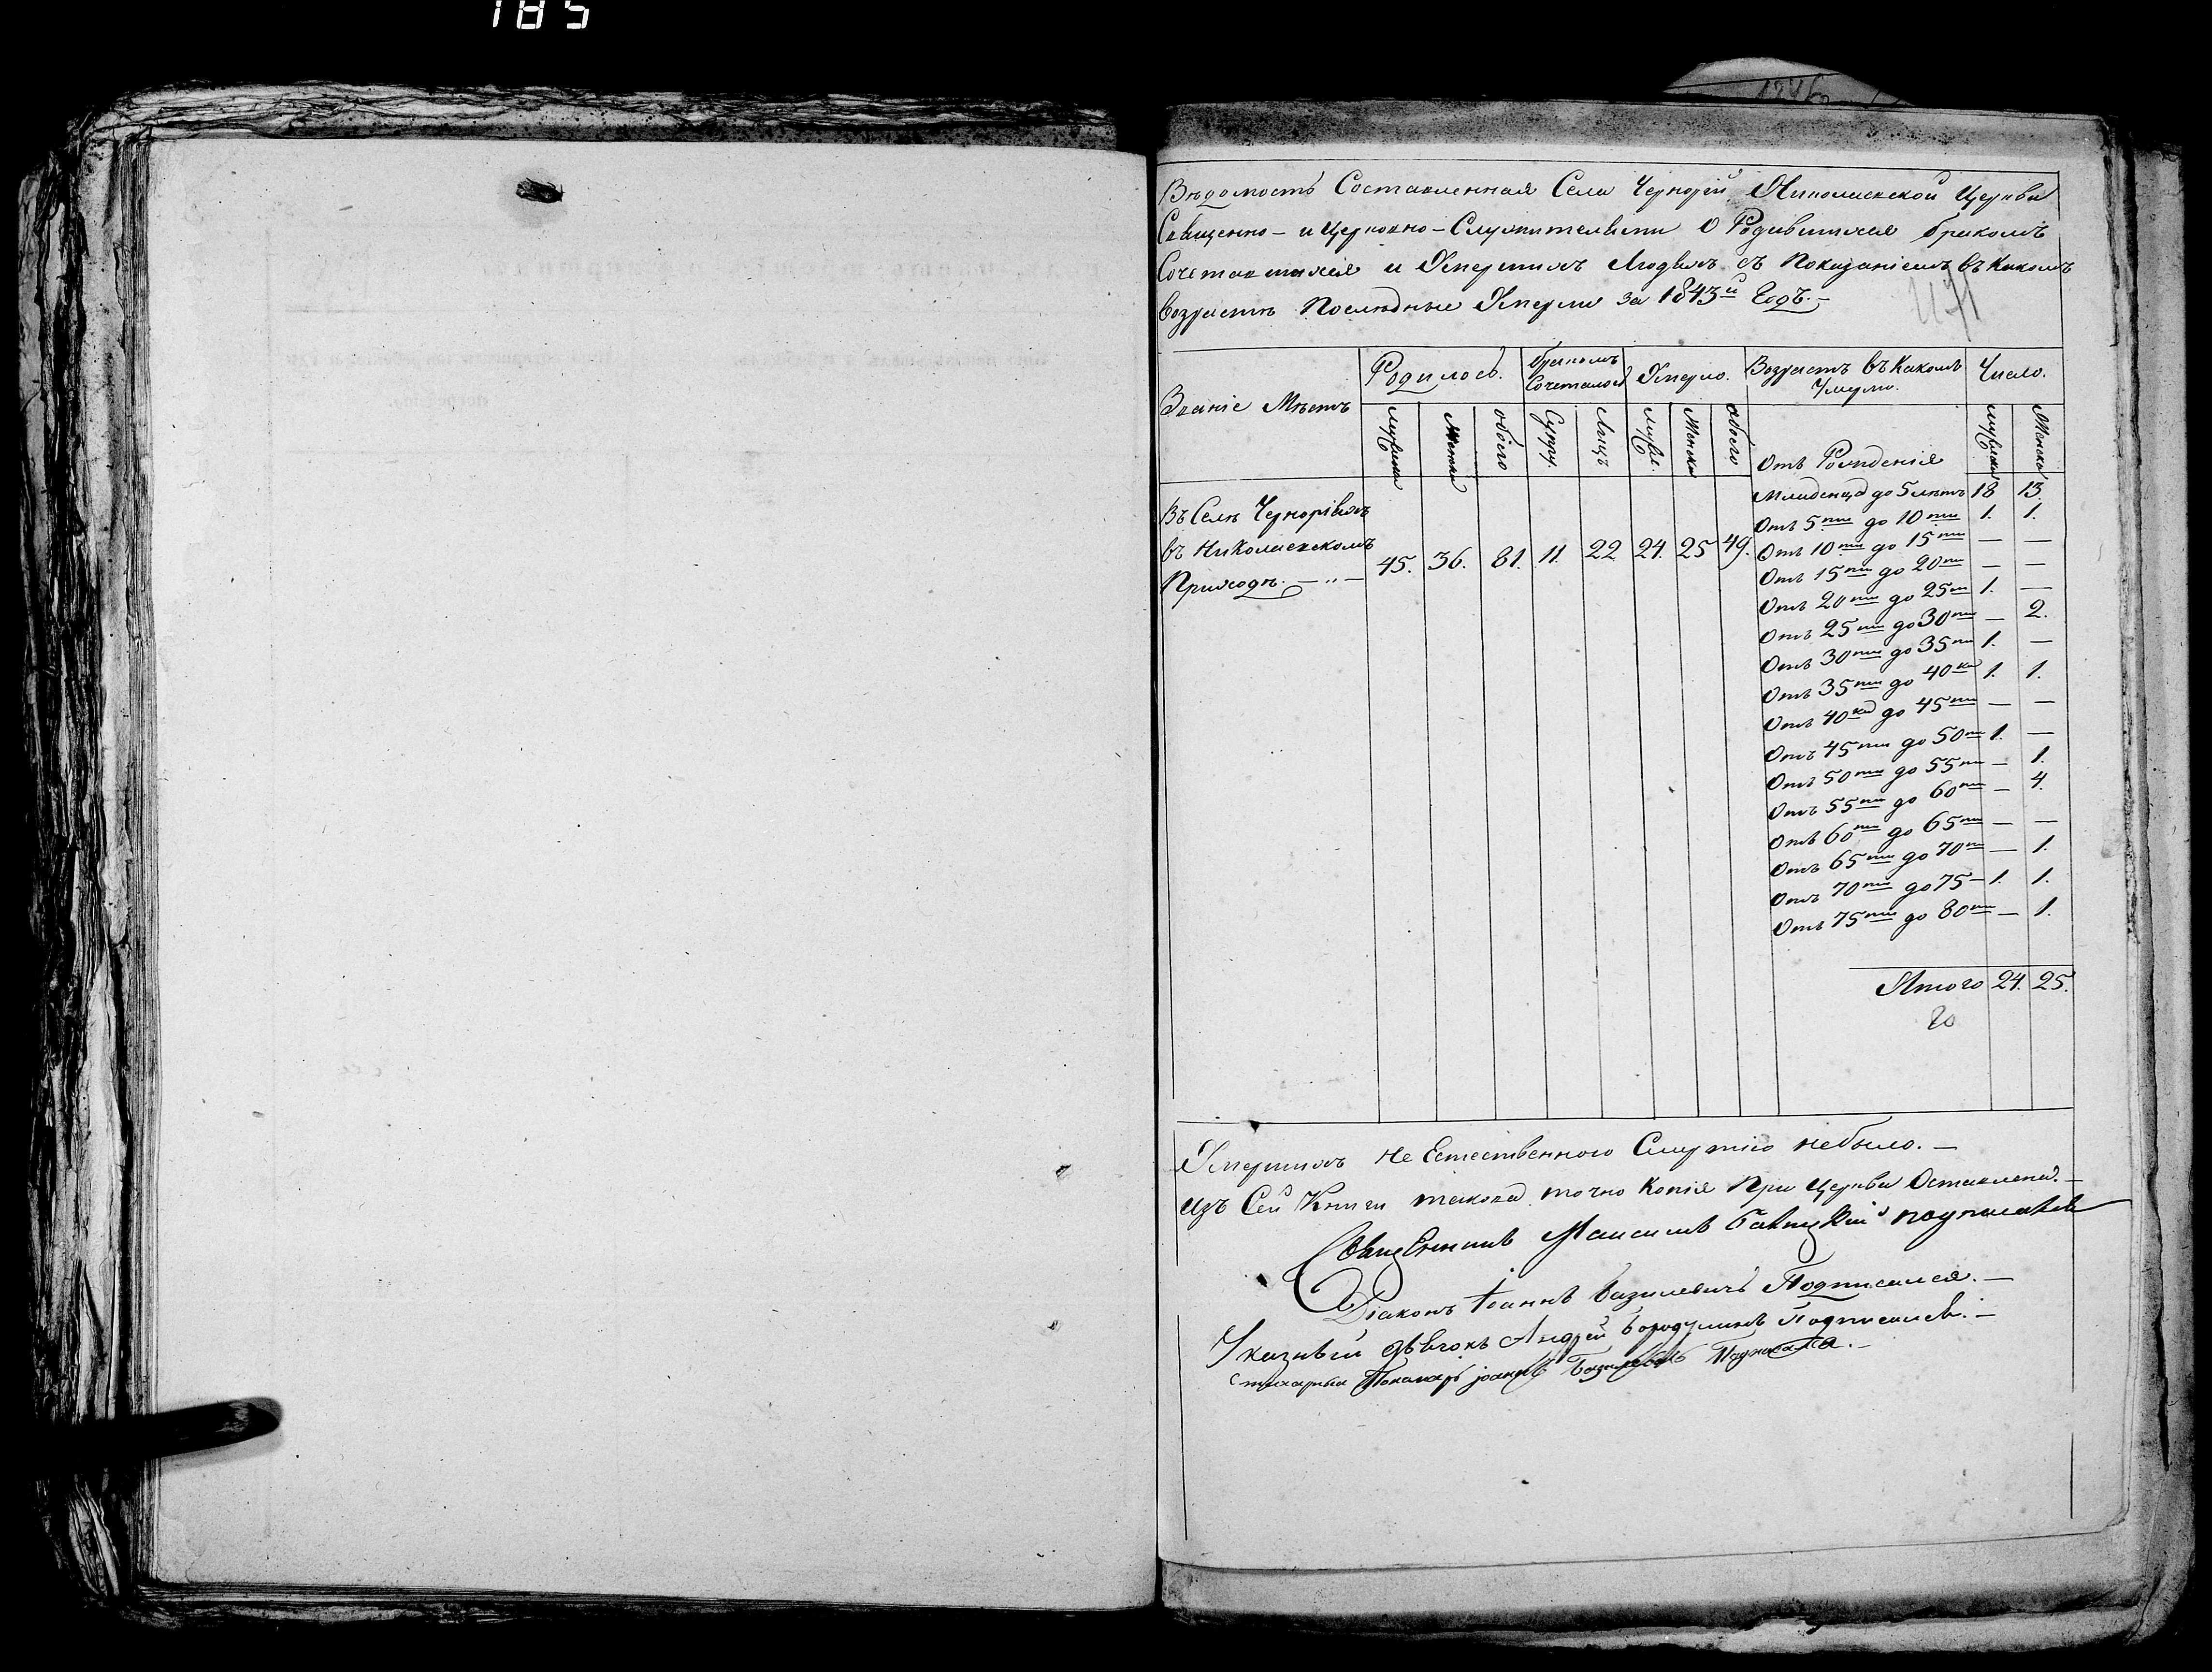 185
Вѣдомость Составленная Села Чернорѣй Николаевской Церкви
Священно- и Церковно-Служителями О Родившихся бракомъ
Сочетавшихся и Умершихъ Людяхъ съ Показаніемъ въ Какомъ
возрастѣ Послѣдные Умерли за 1843й Годъ.-
Званіе Мѣстъ
Родилось.
бракомъ Сочеталось
Умерло.
Возрастъ въ Какомъ Умерло.
Число.
мужеска Женска обоего Супру. Лицъ муже. Женска обоего Отъ Рожденія мужеска Женска
Въ Селѣ Чернорівкѣ
въ Николаевскомъ
Приходѣ. — „ —
45. 36. 81. 11. 22 24. 25 49.
Младенца до 5 лѣтъ 18 13.
Отъ 5ти до 10ти 1. 1.
Отъ 10ти до 15ти — —
Отъ 15ти до 20ти — —
Отъ 20ти до 25ти 1. —
Отъ 25ти до 30ти — 2.
Отъ 30ти до 35ти 1. —
Отъ 35ти до 40ка 1. 1.
Отъ 40ка до 45ти — —
Отъ 45ти до 50ти 1. —
Отъ 50ти до 55ти — 1.
Отъ 55ти до 60ти — 4.
Отъ 60ти до 65ти — —
Отъ 65ти до 70ти — 1.
Отъ 70ти до 75 — 1. 1.
Отъ 75ти до 80ти — 1.
Итого 24. 25.
Умершихъ не Естественною Смертію небыло. —
Изъ Сей Книги такова точно Копія При Церкви Оставлена. —
Священникъ подписался
Діаконъ Іоаннъ Базилевичъ Подписался. —
Указный дьячокъ Андрей Бородулинъ Подписался. —
Стихарный Пономарь Іоаннъ Базилевичъ Подписался. —